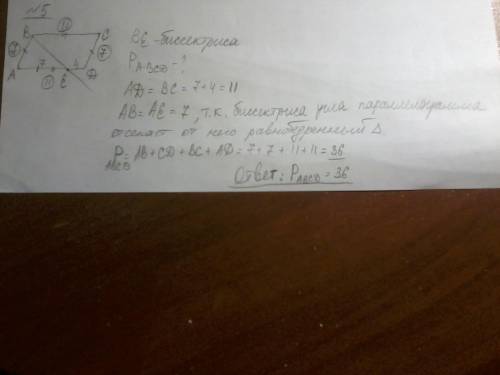 №5
11
B
C
7
7
A
7
E
4
D
11
BE - биссектриса
P ABCD - ?
AD = BC = 7+4 = 11
AB = AE = 7, т.к. биссектриса угла параллелограмма
отсекает от него равнобедренный Δ.
P ABCD = AB + CD + BC + AD = 7 + 7 + 11 + 11 = 36
Ответ: P ABCD = 36